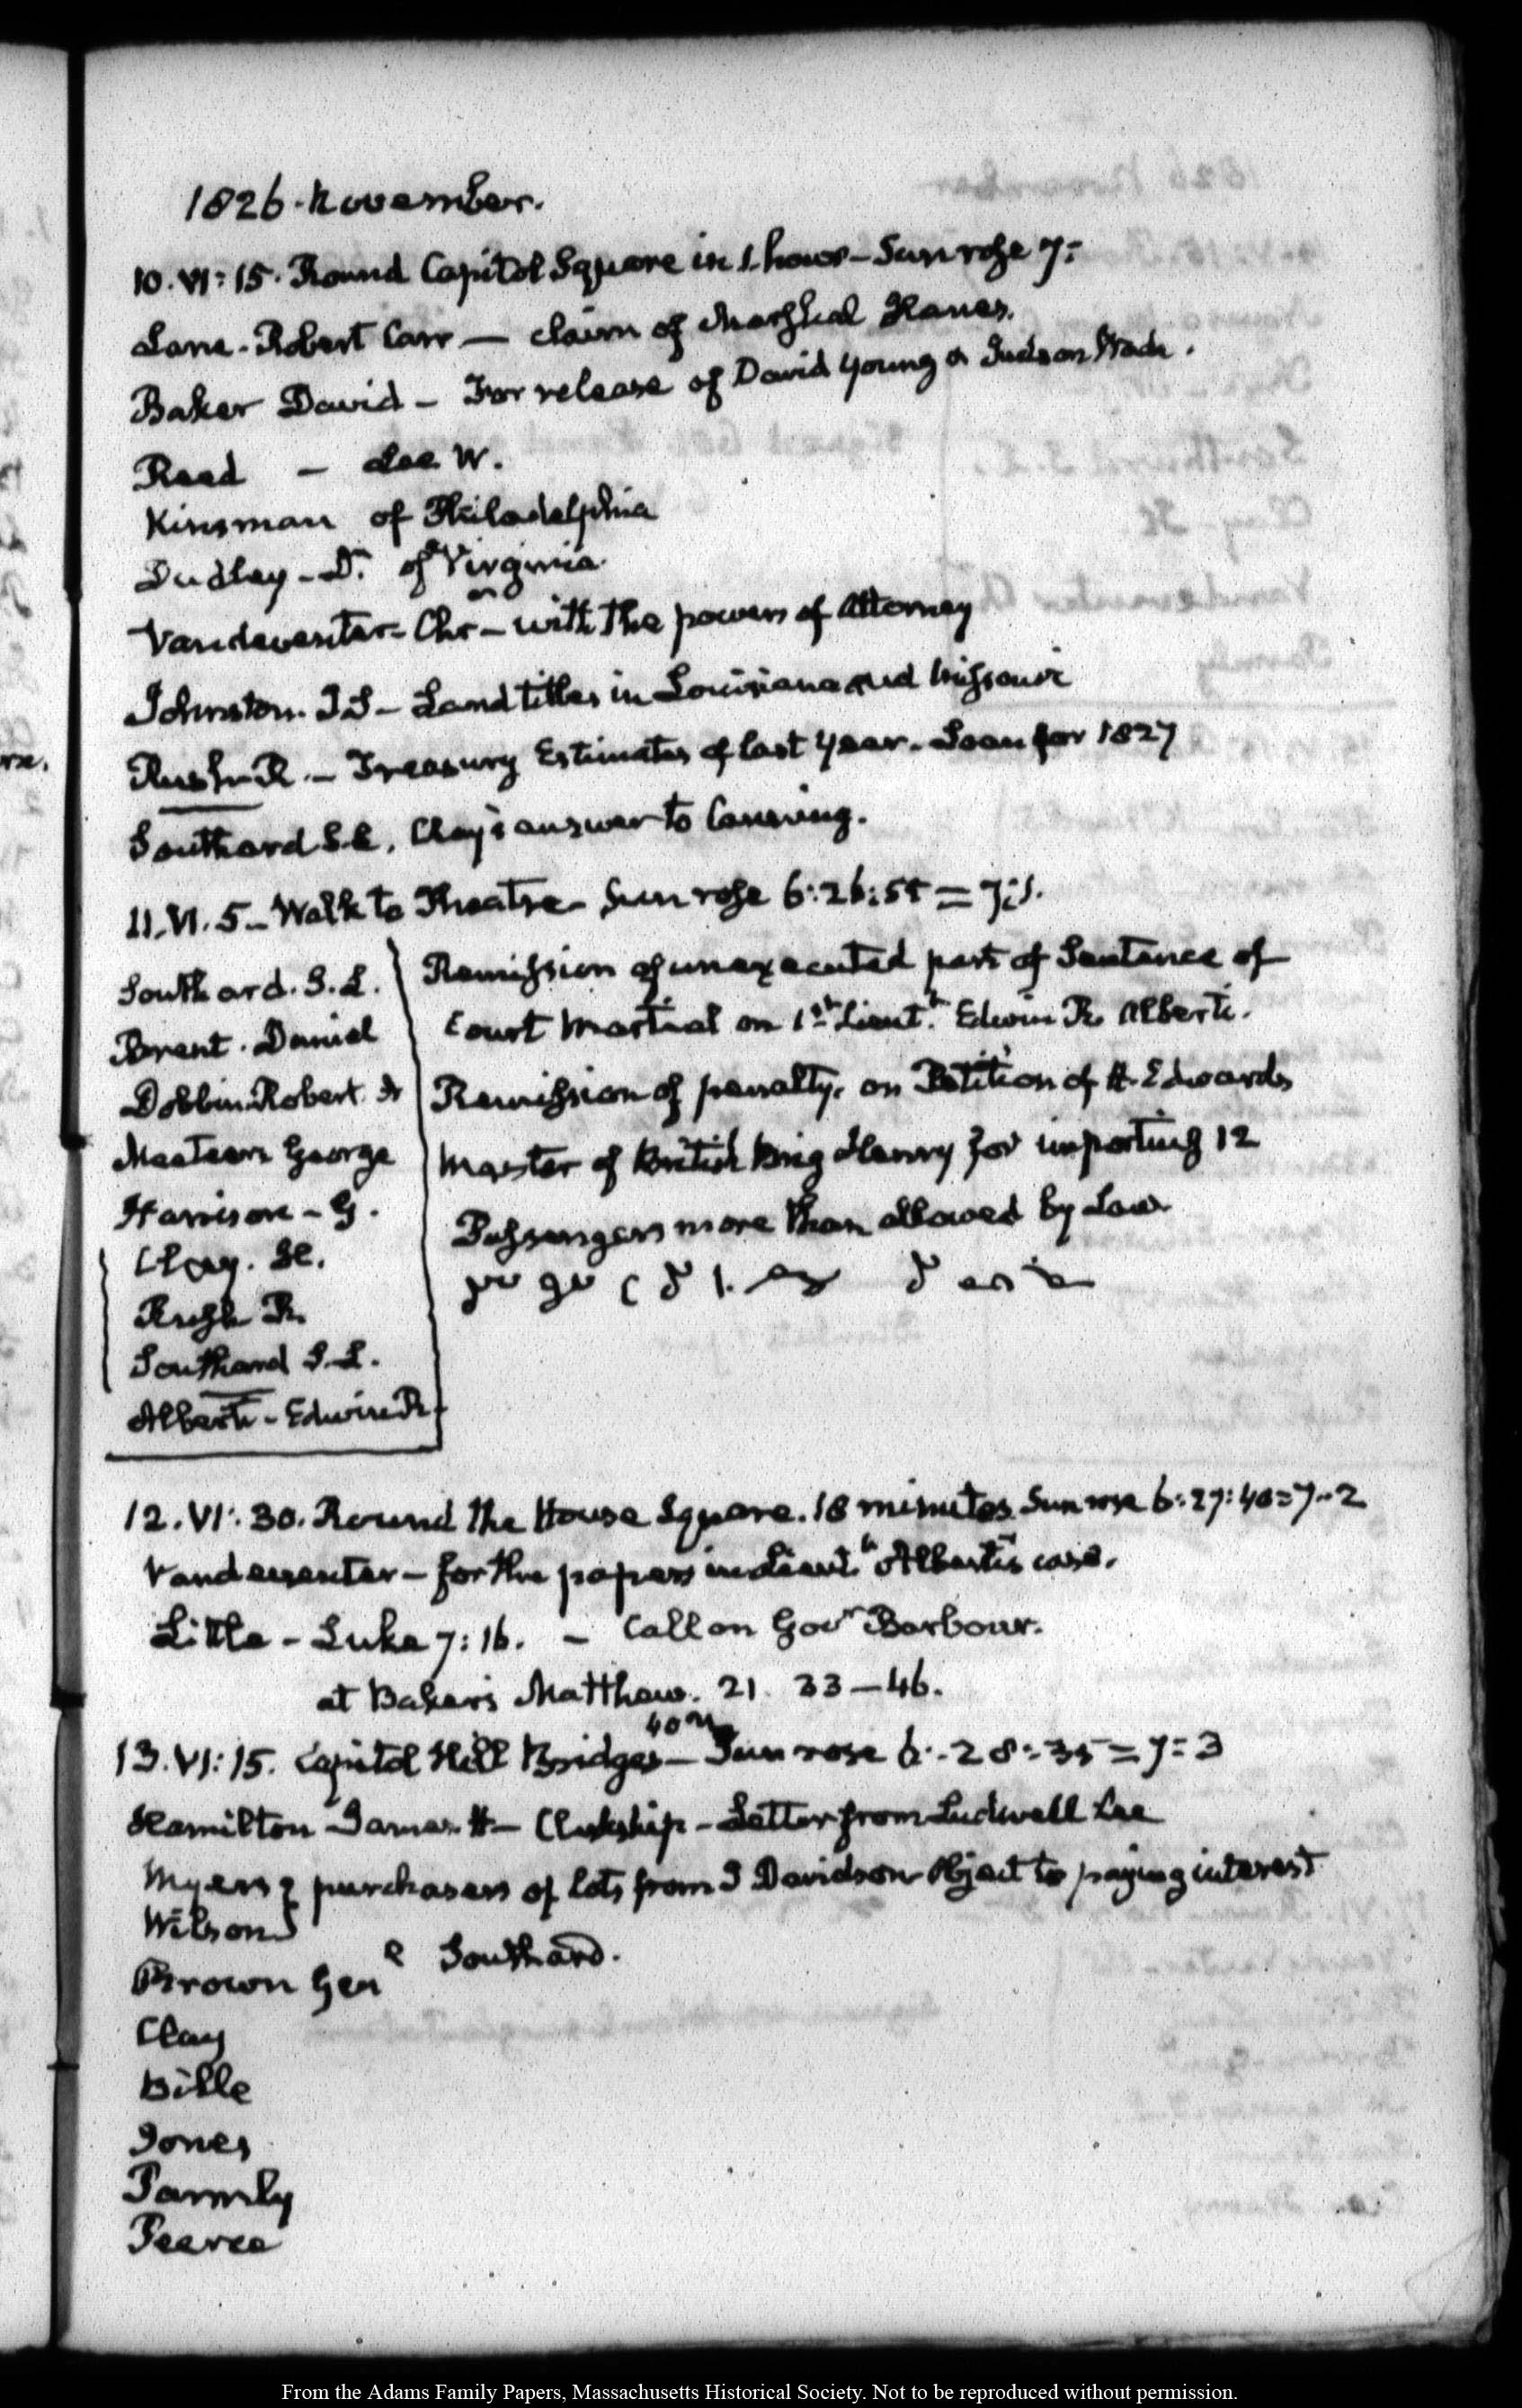 1826. November.
10. VI: 15. Round Capitol Square in 1. hour – Sun rose 7:
Lane. Robert Carr — claim of Marshal
Baker David – For release of David Young & Judson
Read – Lee W.
Kinsman of Philadelphia
Dudley – D. of Virginia
Vandeventer – Chr – with the powers of Attorney
Johnston. J S – Land titles in Louisiana and Missouri
Rush R. – Treasury Estimates of last year. Loan for 1827
Southard S. L. Clay's answer to Canning.
11. VI. 5 – Walk to Theatre – Sun rose 6:26:54 = 7:1.
Southard. S. L.
Brent. Daniel
Dobbin Robert
George
Harrison – G.
Clay. H.
Rush R.
Southard S. L.
Alberti – Edwin R.
Remission of unexecuted part of Sentence of
Court Martial on 1st Lieut.t Edwin R. Alberti.
Remission of penalty, on Petition of H. Edwards
Master of British Brig Henry for importing 12
Passengers more than allowed by Law
12. VI: 30. Round the House Square. 18 minutes Sun rose 6:27:40 = 7–2
Vandeventer – for the papers in Lieut.t Alberti's case.
Little – Luke 7:16. – Call on Gov.r Barbour.
at Baker's Matthew. 21. 33–46.
13. VI: 15. Capitol Hill Bridges 40m – Sun rose 6:28:35 = 7:3
Hamilton James H – Clerkship – Letter from Ludwell Lee
Myers } purchasers of lots from J Davidson Object to paying interest
Wilson }
Brown Gen.l & Southard.
Clay
Bille
Jones
Parmly
Pearce
From the Adams Family Papers, Massachusetts Historical Society. Not to be reproduced without permission.